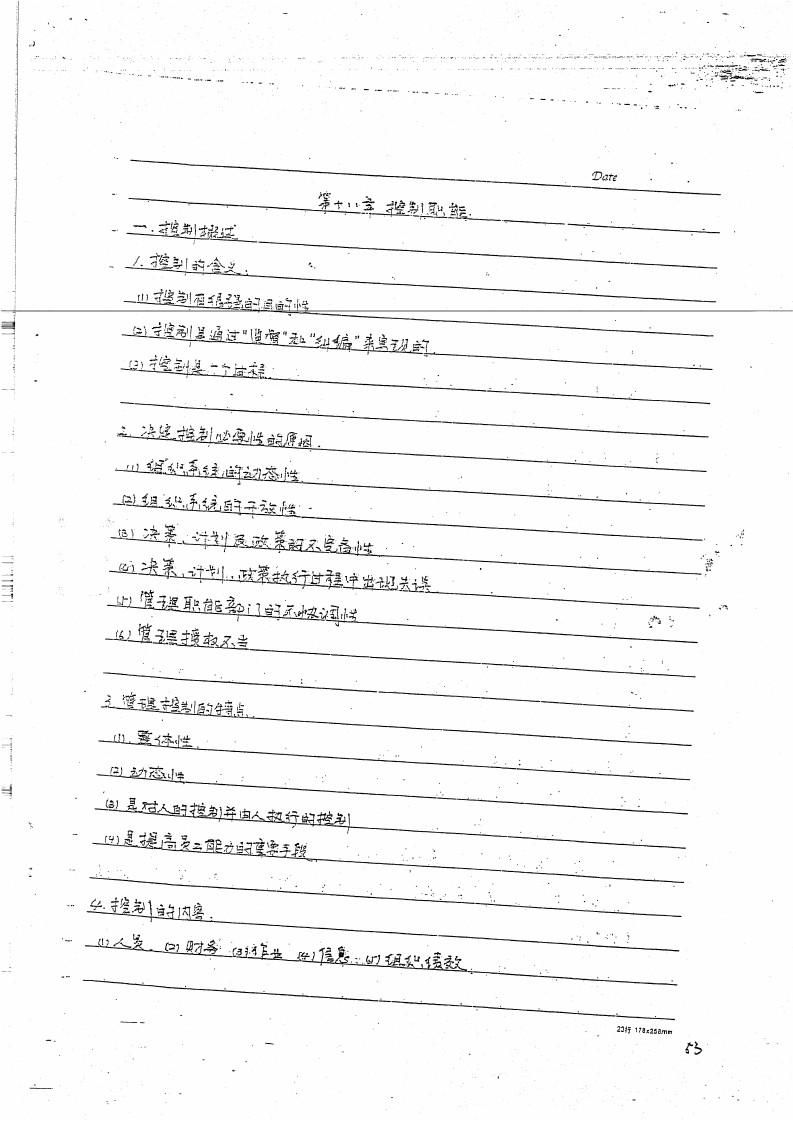 Date
第十八章 控制职能.
一.控制概述
1.控制的含义.
(1) 控制有很强的目的性
(2) 控制是通过“监督”和“纠偏”来实现的.
(3) 控制是一个过程.
2. 决定控制必要性的原因.
(1) 组织系统的动态性
(2) 组织系统的开放性
(3) 决策、计划及政策的不完备性
(4) 决策、计划、政策执行过程中出现失误
(5) 管理职能部门的不协调性
(6) 管理授权不当
3. 管理控制的特点.
(1). 整体性.
(2) 动态性
(3) 是对人的控制并由人执行的控制
(4) 是提高员工能力的重要手段
4. 控制的内容.
(1) 人员. (2) 财务 (3) 作业 (4) 信息. (5) 组织绩效.
23行 178x258mm
53